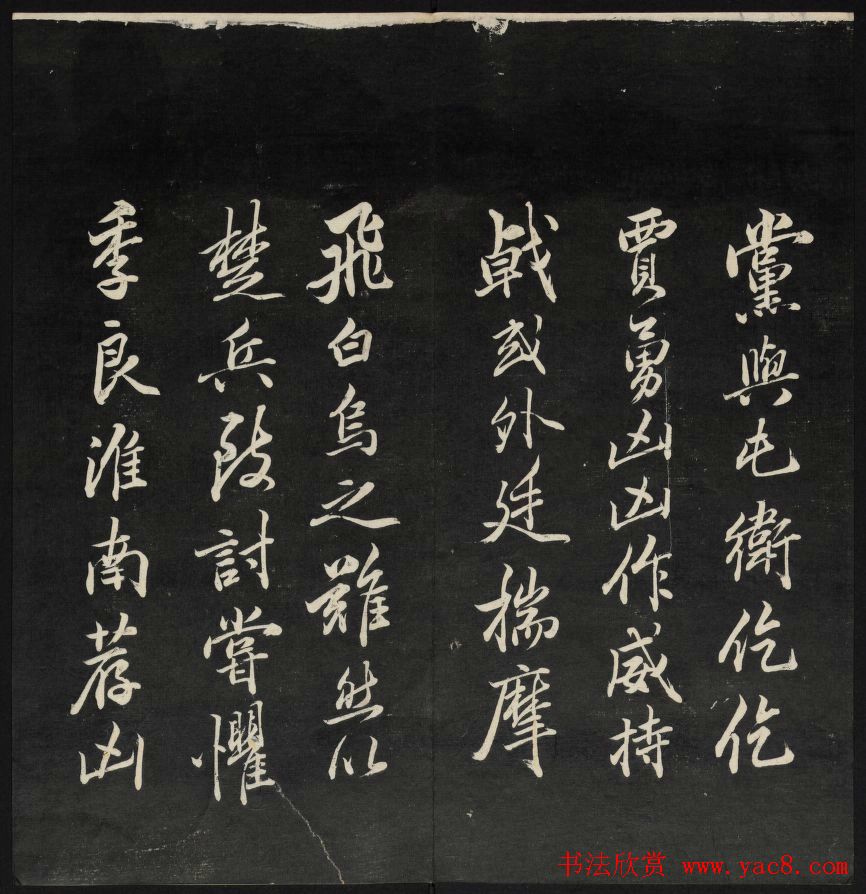 黨與屯衛仡仡
賈勇凶凶作威持
戟或外廷揣摩
飛白烏之難然以
楚兵致討嘗懼
季良淮南荐凶
书法欣赏 www.yac8.com